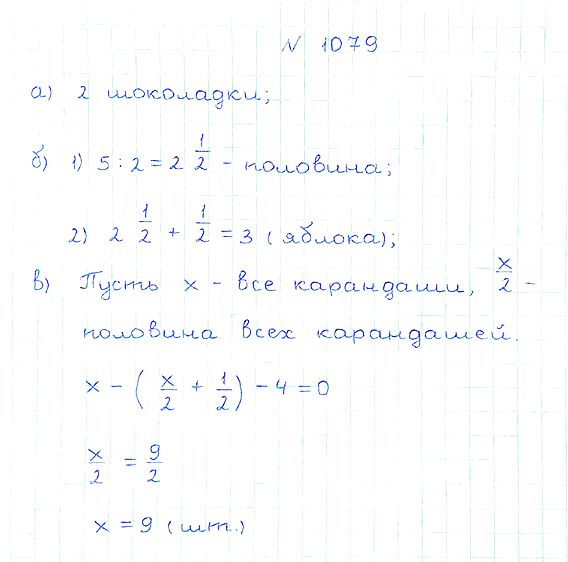 N 1079
а) 2 шоколадки;
б) 1) 5 : 2 = 2 1/2 - половина;
2) 2 1/2 + 1/2 = 3 (яблока);
в) Пусть x - все карандаши, x/2 -
половина всех карандашей.
x - ( x/2 + 1/2 ) - 4 = 0
x/2 = 9/2
x = 9 (шт.)